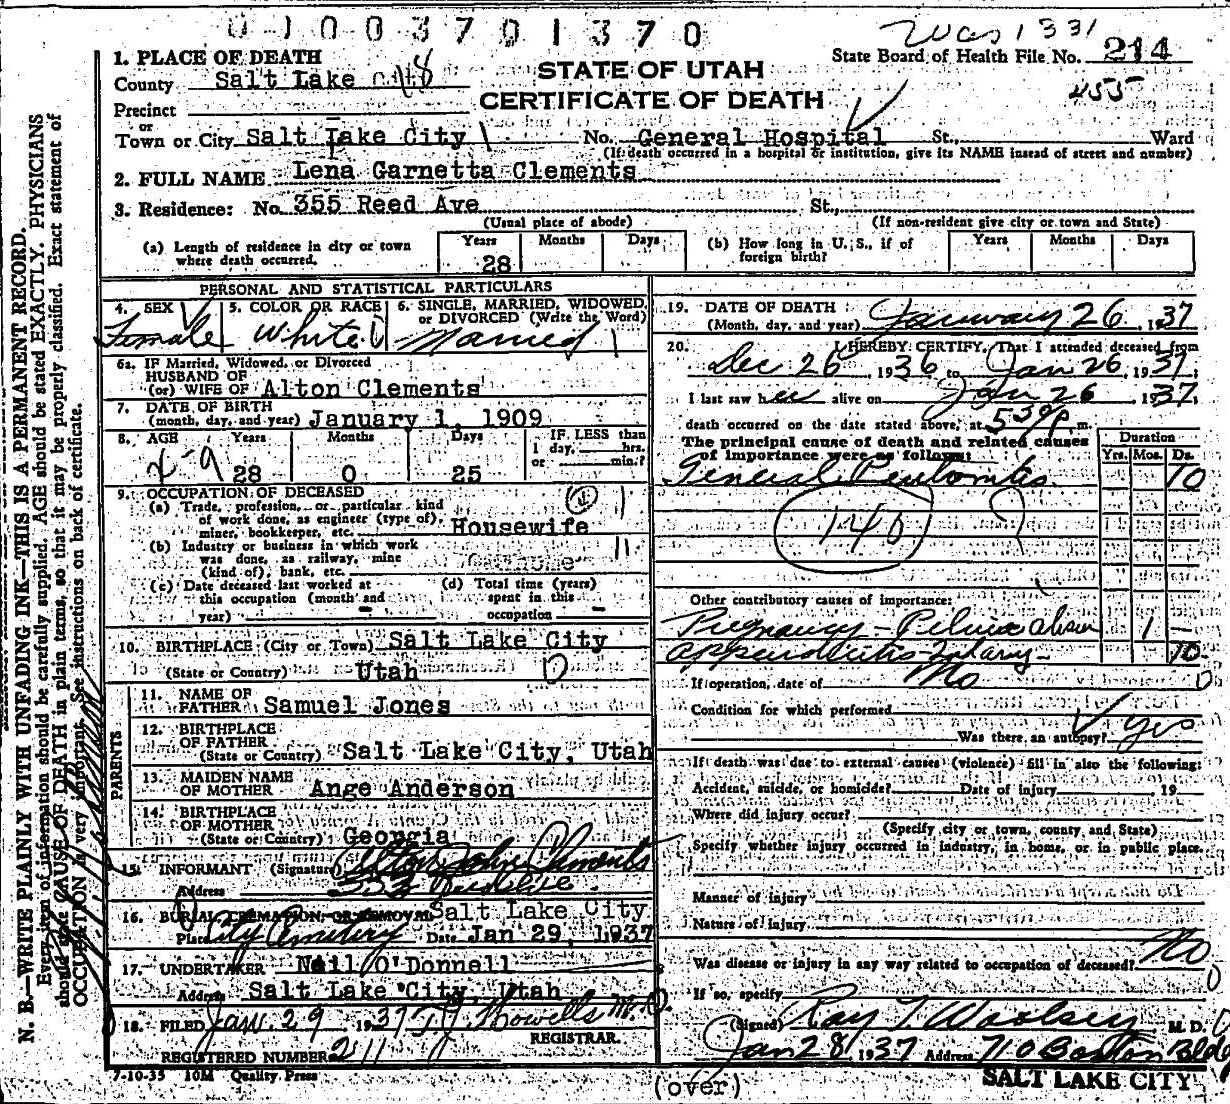 0 1 0 0 3 7 0 1 3 7 0
Was 1331
State Board of Health File No. 214
455
1. PLACE OF DEATH
County Salt Lake
18
STATE OF UTAH
CERTIFICATE OF DEATH
Precinct
or
Town or City Salt Lake City No. General Hospital St., Ward
(If death occurred in a hospital or institution, give its NAME instead of street and number)
2. FULL NAME Lena Garnetta Clements
3. Residence: No. 355 Reed Ave St.,
(Usual place of abode) (If non-resident give city or town and State)
(a) Length of residence in city or town where death occurred.
Years Months Days
28
(b) How long in U. S., if of foreign birth?
Years Months Days
PERSONAL AND STATISTICAL PARTICULARS
4. SEX 5. COLOR OR RACE 6. SINGLE, MARRIED, WIDOWED,
or DIVORCED (Write the Word)
Female White Married
6a. IF Married, Widowed, or Divorced
HUSBAND OF
(or) WIFE OF Alton Clements
7. DATE OF BIRTH
(month, day, and year) January 1, 1909
8. AGE Years Months Days IF LESS than
1 day, hrs.
or min.?
28 0 25
9. OCCUPATION OF DECEASED
(a) Trade, profession, or particular kind
of work done, as engineer (type of),
miner, bookkeeper, etc. Housewife
(b) Industry or business in which work
was done, as railway, mine
(kind of); bank, etc.
(c) Date deceased last worked at
this occupation (month and
year) -
(d) Total time (years)
spent in this
occupation -
10. BIRTHPLACE (City or Town) Salt Lake City
(State or Country) Utah
PARENTS
11. NAME OF
FATHER Samuel Jones
12. BIRTHPLACE
OF FATHER
(State or Country) Salt Lake City, Utah
13. MAIDEN NAME
OF MOTHER Ange Anderson
14. BIRTHPLACE
OF MOTHER
(State or Country) Georgia
15. INFORMANT (Signature) Alton John Clements
Address
16. BURIAL, CREMATION, OR REMOVAL Salt Lake City
Place City Cemetery Date Jan 29, 1937
17. UNDERTAKER Neil O'Donnell
Address Salt Lake City, Utah
18. FILED Jan. 29, 1937 T J Howells M.D.
REGISTRAR.
REGISTERED NUMBER 211
7-10-35 10M Quality Press
19. DATE OF DEATH
(Month, day, and year) January 26, 1937
20. I HEREBY CERTIFY, That I attended deceased from
Dec 26, 1936 to Jan 26, 1937.
I last saw her alive on Jan 26, 1937;
death occurred on the date stated above, at 5 30 p. m.
The principal cause of death and related causes
of importance were as follows:
Duration
Yrs. Mos. Ds.
General Peritonitis 10
140
Other contributory causes of importance:
Pregnancy - Pelvic 1 -
appendicitis 10
If operation, date of No
Condition for which performed
Was there an autopsy? Yes
If death was due to external causes (violence) fill in also the following:
Accident, suicide, or homicide? Date of injury 19
Where did injury occur?
(Specify city or town, county and State)
Specify whether injury occurred in industry, in home, or in public place.
Manner of injury
Nature of injury
Was disease or injury in any way related to occupation of deceased? No
If so, specify
(Signed) Ray T Woolsey M. D.
Jan 28, 1937 Address 710 Boston Bldg
SALT LAKE CITY
(over)
N. B.—WRITE PLAINLY WITH UNFADING INK—THIS IS A PERMANENT RECORD.
Every item of information should be carefully supplied. AGE should be stated EXACTLY. PHYSICIANS
should state CAUSE OF DEATH in plain terms, so that it may be properly classified. Exact statement of
OCCUPATION is very important. See instructions on back of certificate.